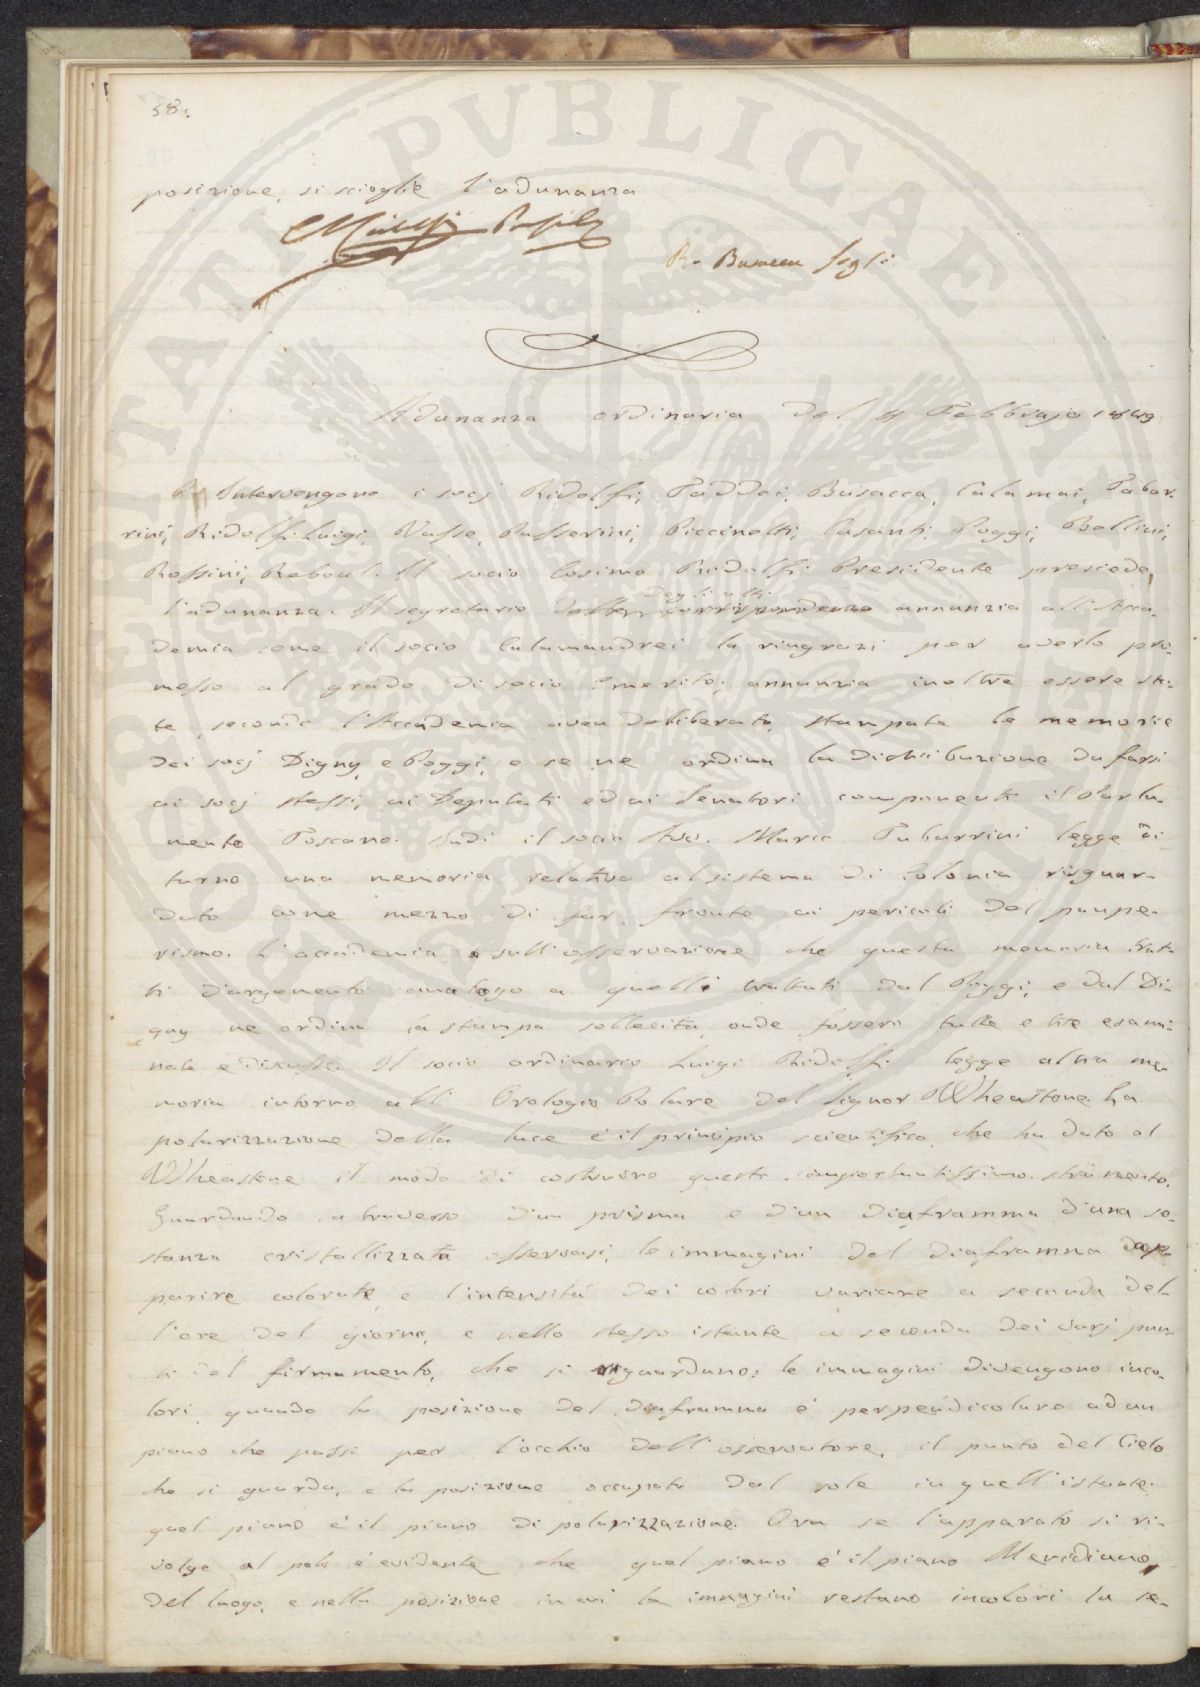 58.
posizione, si scioglie l'adunanza
R. Busacca Seg.
Adunanza ordinaria del 4 Febbrajo 1849
Intervengono i socj Ridolfi, Taddei, Busacca, Calamai, Tabar-
rini, Ridolfi Luigi, Vasse, Passerini, Piccinetti, Casanti, Poggi, Bellini,
Rossini, Reboul. Il socio Cosimo Ridolfi Presidente presiede
degli atti
l'adunanza. Il segretario delle corrispondenze annunzia all'Acca-
demia come il socio Calamandrei la ringrazi per averlo pro-
messo al grado di socio emerito; annunzia inoltre essere sta-
te, secondo l'Accademia avea deliberato, stampate le memorie
dei socj Digny, e Poggi, e se ne ordina la distribuzione da farsi
ai socj stessi, ai Deputati ed ai Senatori componenti il Parla-
mento Toscano. Indi il socio Avv. Marco Tabarrini legge di
turno una memoria relativa al sistema di Colonia risguar-
dato come mezzo di far fronte ai pericoli del paupe-
rismo. L'accademia sull'osservazione che questa memoria trat-
ti d'argomento analogo a quelli trattati dal Poggi, e dal Di-
gny ne ordina la stampa sollecita, onde fossero tutte e tre esami-
nate e discusse. Il socio ordinario Luigi Ridolfi legge altra me-
moria intorno all' Orologio Polare del Signor Wheastone. La
polarizzazione della luce é il principio scientifico, che ha dato al
Wheastone il modo di costruire questo importantissimo strumento.
Guardando a traverso d'un prisma e d'un diaframma d'una so-
stanza cristallizzata osservasi, le immagini del diaframma ap-
parire colorate, e l'intensitá dei colori variare a seconda del-
l'ore del giorno, e nello stesso istante a seconda dei varj pun-
ti del firmamento, che si risguardano; le immagini divengono inco-
lori, quando la posizione del diaframma é perpendicolare ad un
piano che passi per l'occhio dell'osservatore, il punto del Cielo
che si guarda, e la posizione occupata dal sole in quell'istante.
quel piano é il piano di polarizzazione. Ora se l'apparato si ri-
volge al polo é evidente che quel piano é il piano Meridiano,
del luogo, e nella posizione in cui le immagini restano incolori la se-